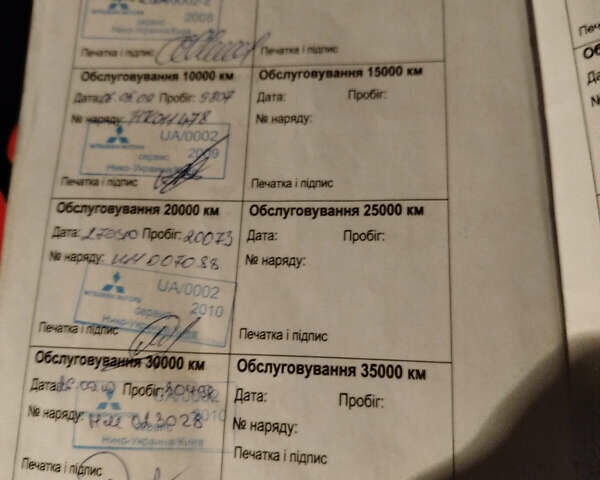 2008
Печатка і підпис
Печатка і підпис
Обслуговування 10000 км
Дата: Пробіг: 9807
№ наряду:
UA/0002
MITSUBISHI MOTORS
сервис 2009
Нико-Украина
Печатка і підпис
Обслуговування 15000 км
Дата: Пробіг:
№ наряду:
Печатка і підпис
Обслуговування 20000 км
Дата: Пробіг: 20073
№ наряду: НМ 007088
UA/0002
MITSUBISHI MOTORS
сервис 2010
Нико-Украина
Печатка і підпис
Обслуговування 25000 км
Дата: Пробіг:
№ наряду:
Печатка і підпис
Обслуговування 30000 км
Дата: Пробіг:
№ наряду: НМ 013028
2010
Нико-Украина Киев
Печатка і підпис
Обслуговування 35000 км
Дата: Пробіг:
№ наряду:
Печатка і підпис